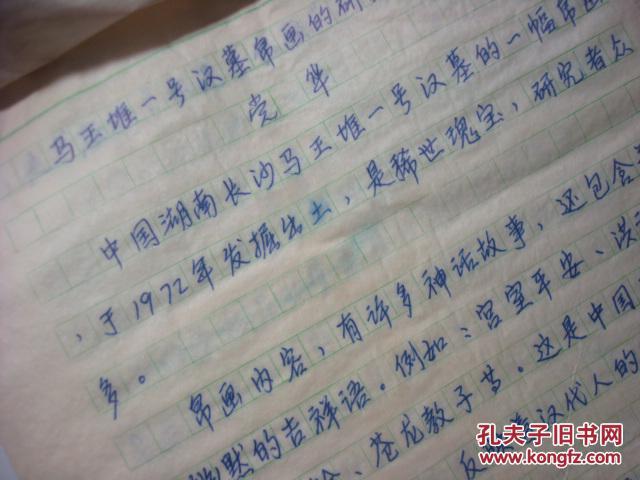 马王堆一号汉墓帛画的研
党华
中国湖南长沙马王堆一号汉墓的一幅帛画
，于1972年发掘出土，是稀世瑰宝，研究者众
多。
帛画内容，有许多神话故事，还包含
幽默的吉祥语。例如：宫室平安、洪
、苍龙教子等。这是中国
反映着汉代人的
孔夫子旧书网
www.kongfz.com